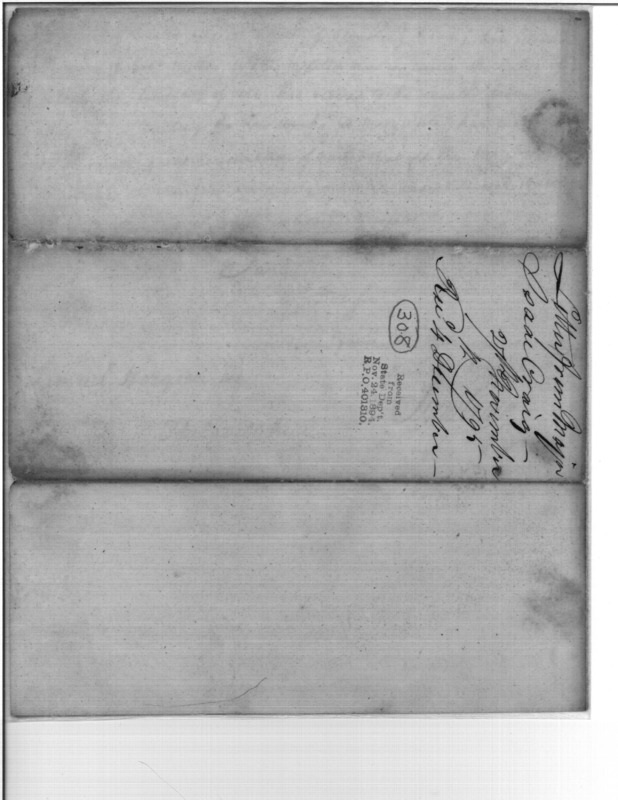 Letter from Major
Isaac Craig —
27 November
1795
Recd 4 December —
308
Received
from
State Dep't,
Nov. 24, 1894,
R.P.O. 401310.